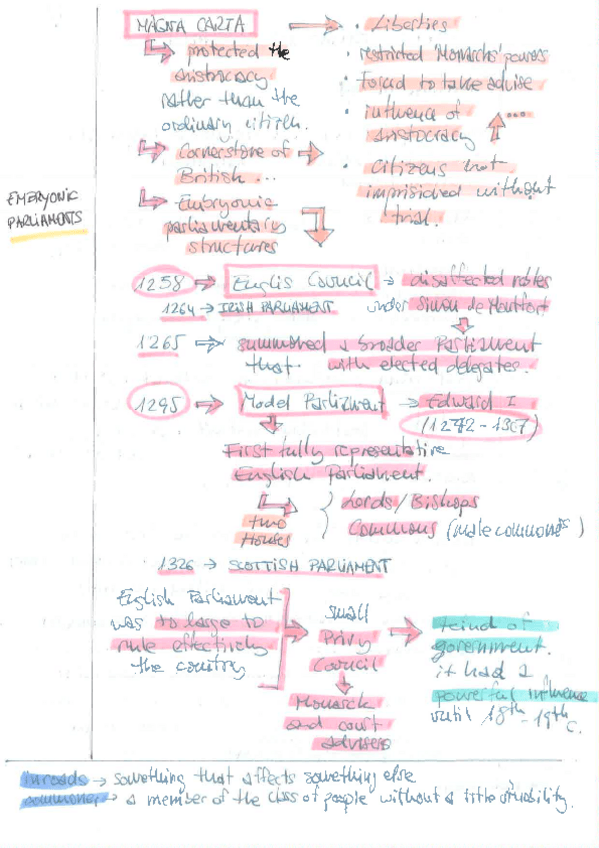 MAGNA CARTA → • Liberties
↳ protected the
aristocracy
rather than the
ordinary citizen.
• restricted 'Monarchs' powers
• forced to take advise
• influence of
aristocracy ↑ ...
↳ Cornerstone of →
British ...
• Citizens not
imprisiched without
trial.
↳ Embryonic
parliamentary
structures
EMBRYONIC
PARLIAMENTS
1258 → Englis Council → disaffected nobles
1264 → IRISH PARLIAMENT under Simon de Montfort
1265 → summoned a broader Parliament
that with elected delegates.
1295 → Model Parliament → Edward I
(1272 - 1307)
First fully representative
English Parliament.
↳ two
Houses
Lords / Bishops
Commons (male commoners)
1326 → SCOTTISH PARLIAMENT
English Parliament
was to large to
rule effectively
the country
small
Privy
Council
Monarch
and court
advisers
→ kind of
government.
it had a
powerful influence
until 18th - 19th c.
inroads → something that affects something else
commoner → a member of the class of people without a title